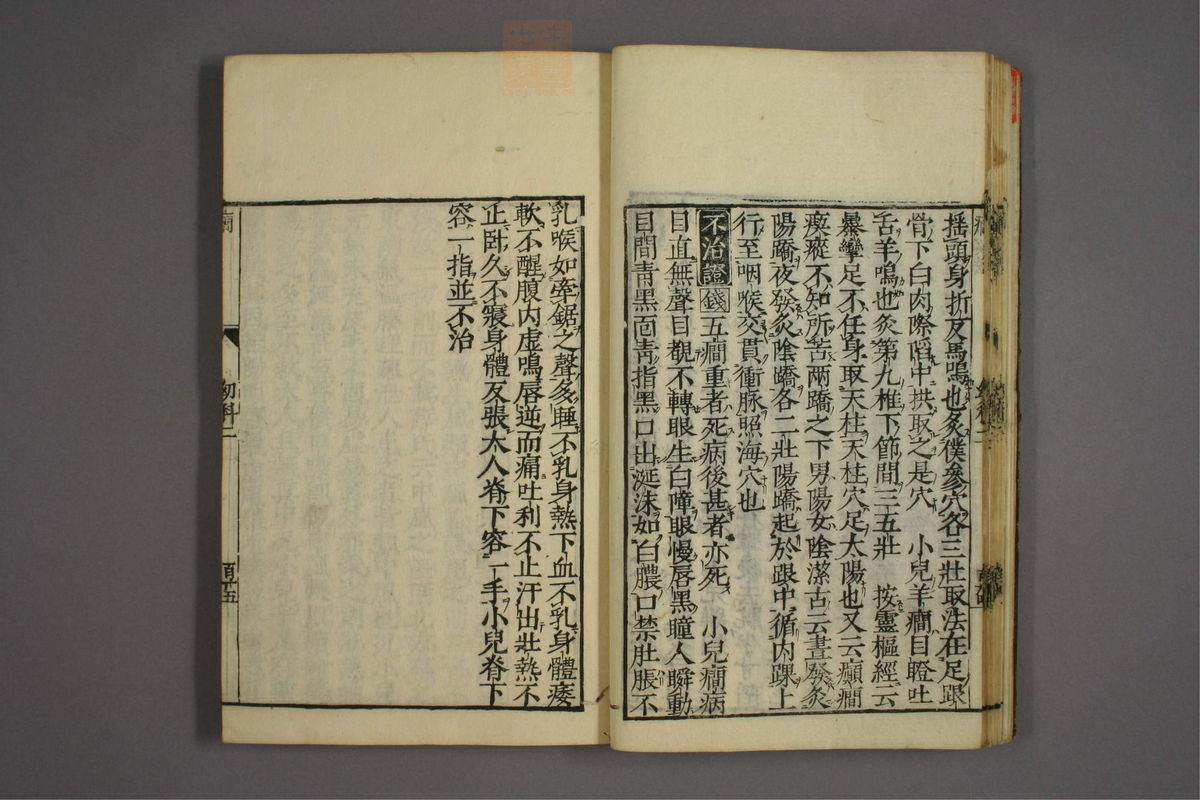 搖頭身折反馬鳴也灸僕參穴各三壯取法在足跟
骨下白肉際陷中拱取之是穴　小兒羊癎目瞪吐
舌羊鳴也灸第九椎下節間三五壯　按靈樞經云
暴攣足不任身取天柱天柱穴足太陽也又云癲癎
瘈瘲不知所苦兩蹻之下男陽女陰潔古云晝發灸
陽蹻夜發灸陰蹻各二壯陽蹻起於跟中循內踝上
行至咽喉交貫衝脉照海穴也
不治證錢五癎重者死病後甚者亦死　小兒癎病
目直無聲目覩不轉眼生白障眼慢唇黑瞳人瞬動
目間青黑面青指黑口出涎沫如白膿口禁肚脹不
乳喉如牽鋸之聲多睡不乳身熱下血不乳身體痿
軟不醒腹內虛鳴唇逆而痛吐利不止汗出壯熱不
止臥久不寤身體反張大人脊下容一手小兒脊下
容一指並不治
癎
幼科二
百五